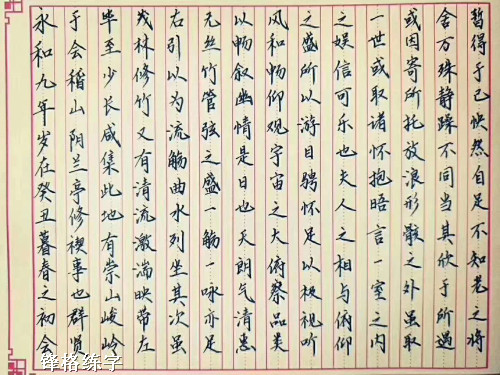 永和九年岁在癸丑暮春之初会
于会稽山阴兰亭修禊事也群贤
毕至少长咸集此地有崇山峻岭
茂林修竹又有清流激湍映带左
右引以为流觞曲水列坐其次虽
无丝竹管弦之盛一觞一咏亦足
以畅叙幽情是日也天朗气清惠
风和畅仰观宇宙之大俯察品类
之盛所以游目骋怀足以极视听
之娱信可乐也夫人之相与俯仰
一世或取诸怀抱晤言一室之内
或因寄所托放浪形骸之外虽取
舍万殊静躁不同当其欣于所遇
暂得于己怏然自足不知老之将
锋格练字